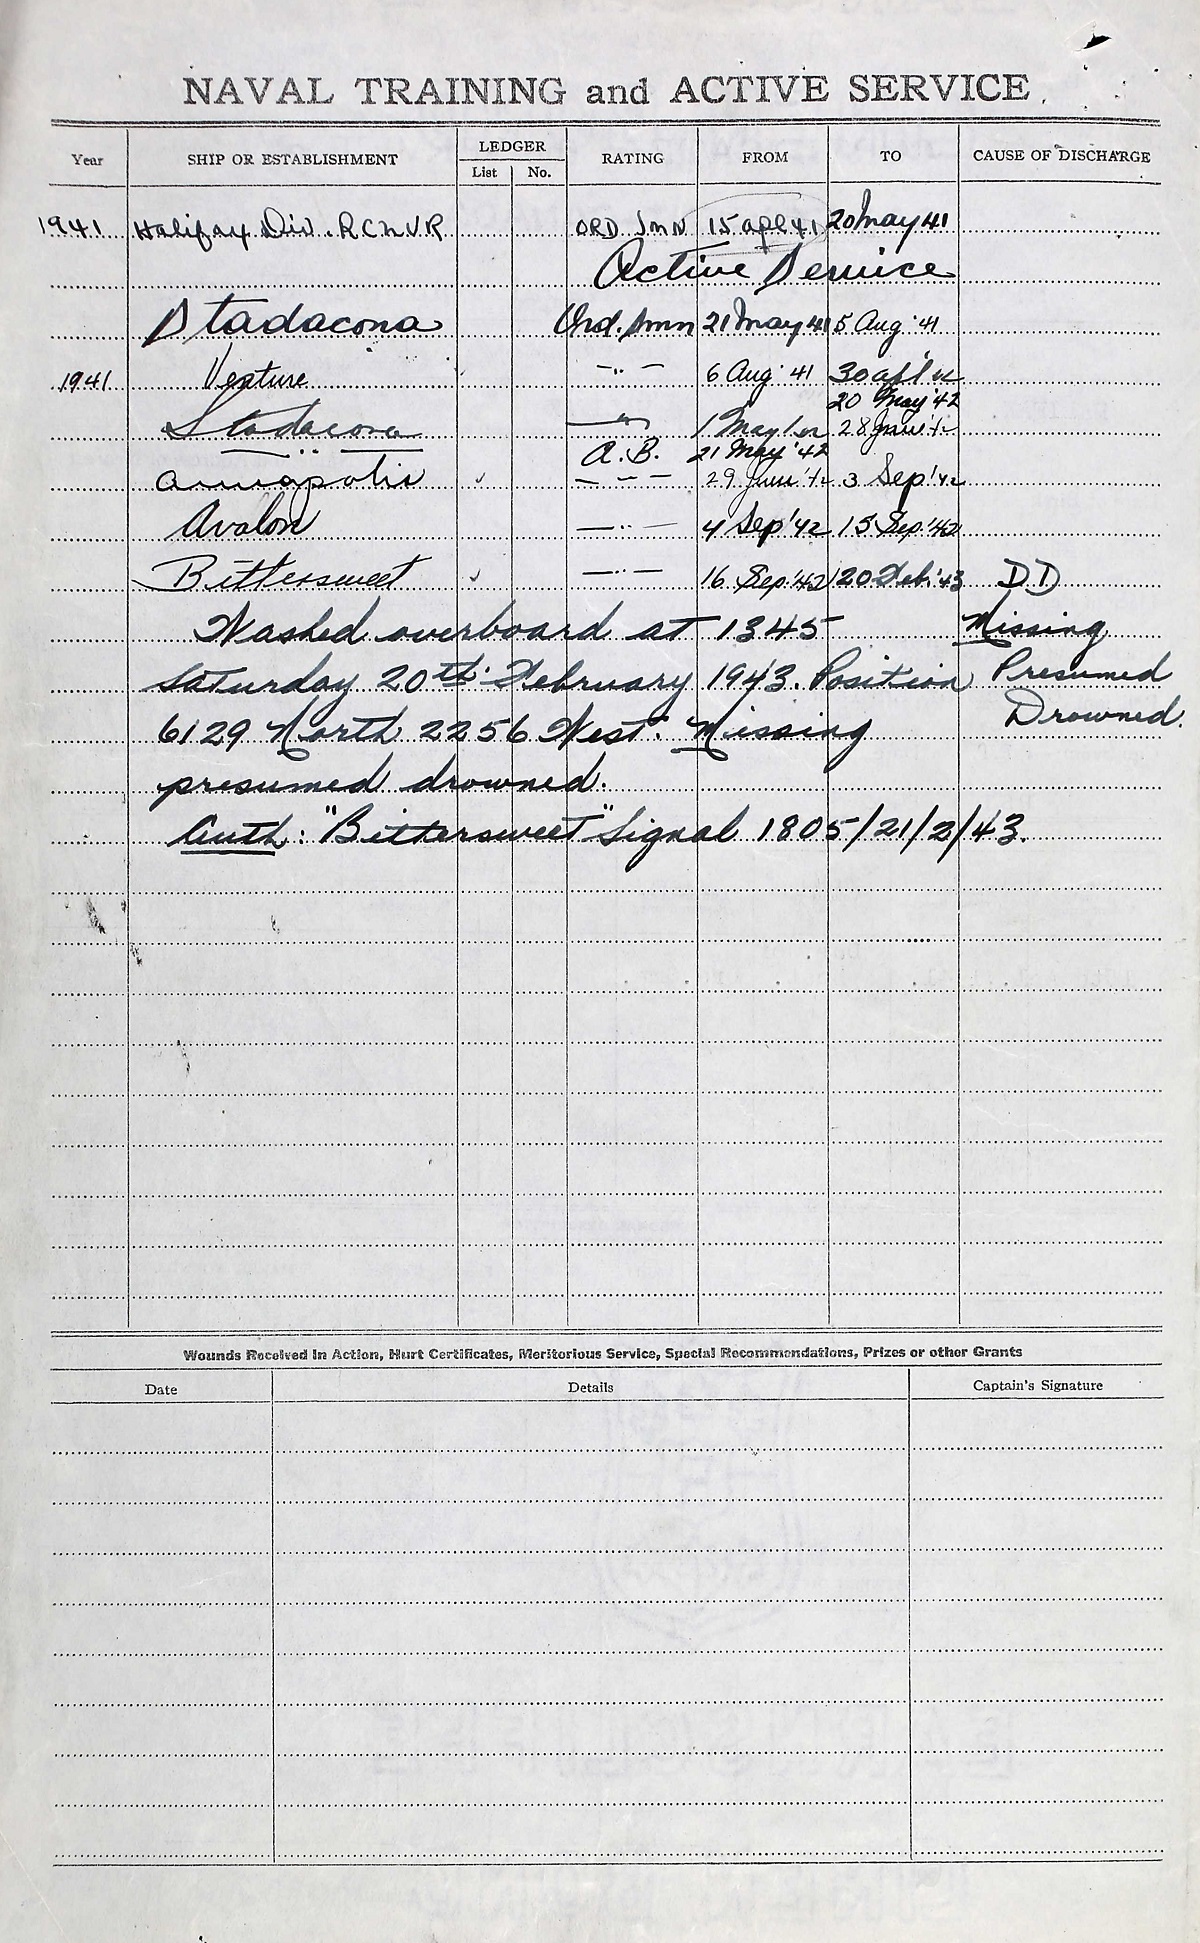 NAVAL TRAINING and ACTIVE SERVICE
Year SHIP OR ESTABLISHMENT LEDGER List No. RATING FROM TO CAUSE OF DISCHARGE
1941 Halifax Div. RCNVR ORD SMN 15 apl 41 20 May 41
Active Service
Stadacona Ord. Smn 21 May 41 5 Aug '41
1941 Venture -..- 6 Aug '41 30 apl
20 May '42
Stadacona 1 May 28 June
-..- A.B. 21 May '42
Annapolis ✓ - - - 29 June 3 Sep '42
Avalon -..- 4 Sep '42 15 Sep. '42
Bittersweet ✓ -..- 16 Sep. '42 20 Feb. '43 DD
Washed overboard at 1345 Missing
Saturday 20th February 1943. Position Presumed
6129 North 2256 West. Missing Drowned.
presumed drowned.
Auth: "Bittersweet" Signal 1805/21/2/43.
Wounds Received in Action, Hurt Certificates, Meritorious Service, Special Recommendations, Prizes or other Grants
Date Details Captain's Signature